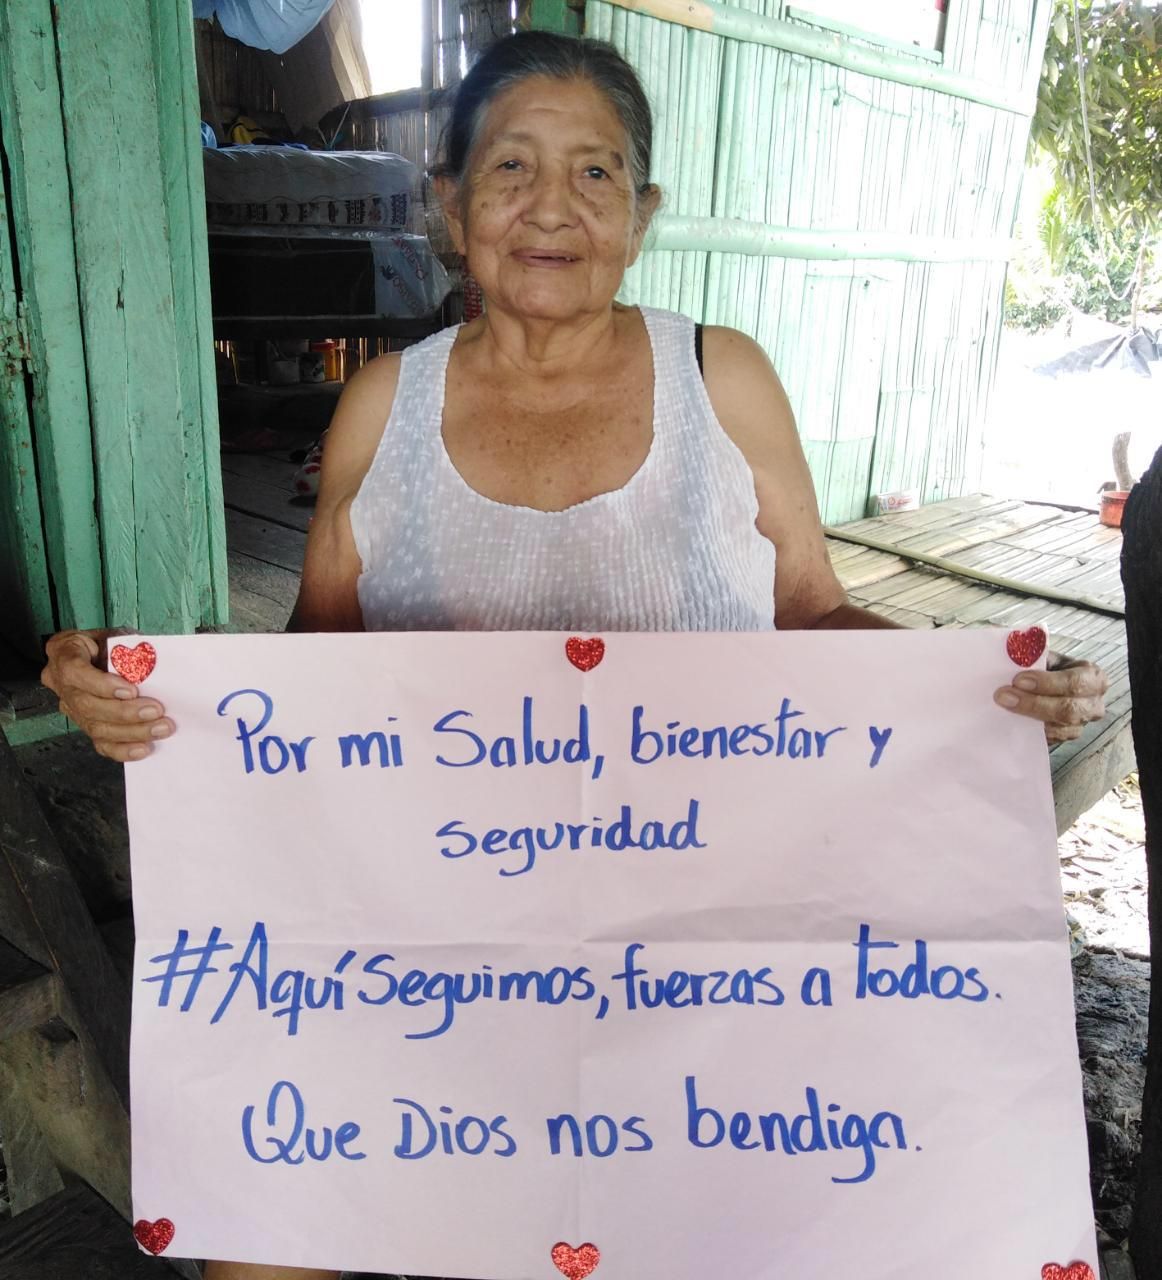 Por mi Salud, bienestar y
seguridad
#AquíSeguimos, fuerzas a todos.
Que Dios nos bendiga.